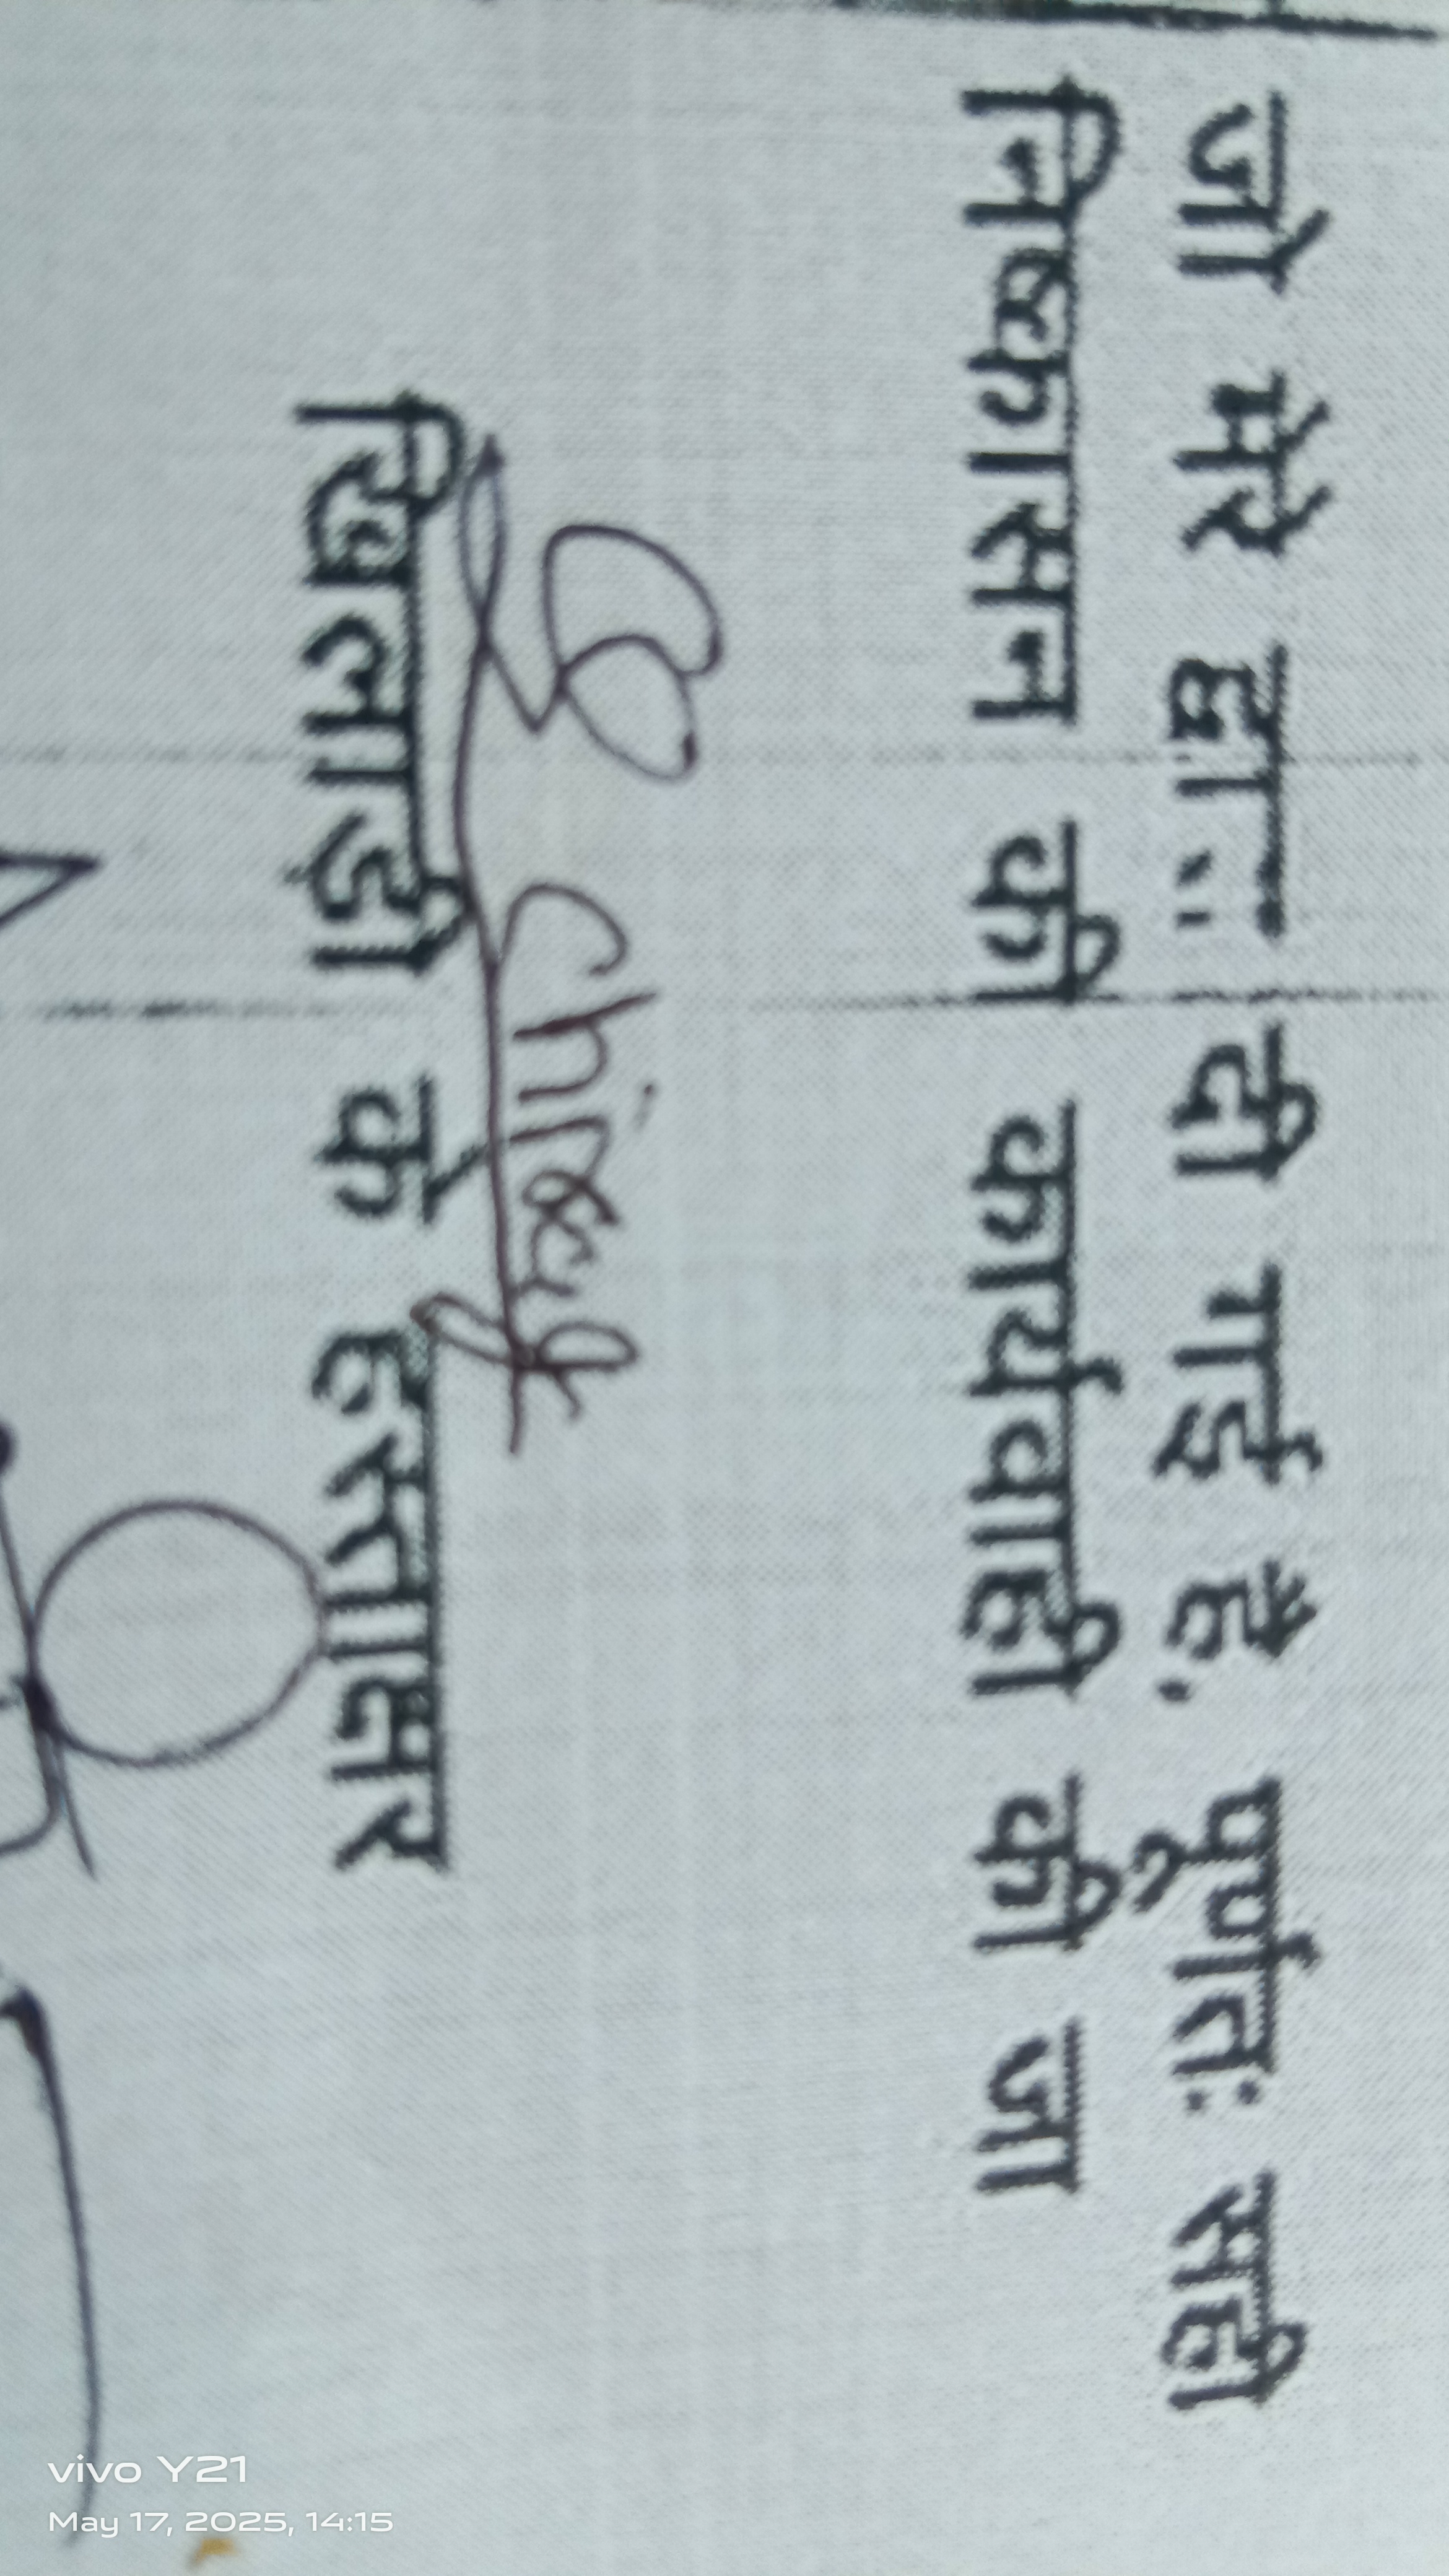 जो मेरे द्वारा दी गई है, पूर्णतः सही
निष्कासन की कार्यवाही की जा
Chirag
खिलाड़ी के हस्ताक्षर
vivo Y21
May 17, 2025, 14:15